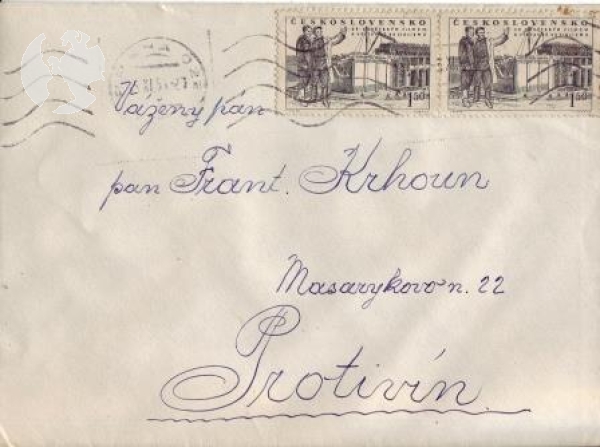 ČESKOSLOVENSKO
1.50
ČESKOSLOVENSKO
1.50
Vážený pán
pan Frant. Krhoun
Masarykovo n. 22
Protivín